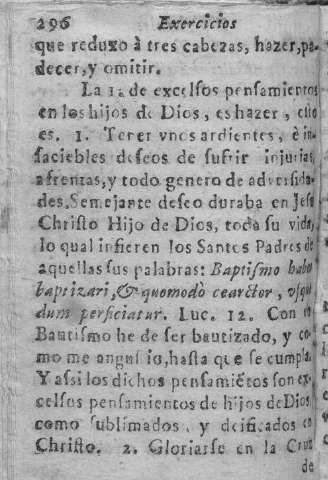 296 Exercicios
que reduxo à tres cabezas, hazer, pa-
decer, y omitir.
La 12 de excelsos pensamientos
en los hijos de Dios, es hazer, esto
es. 1. Tener vnos ardientes, è in-
saciebles deseos de sufrir injurias,
afrentas, y todo genero de adversida-
des. Semejante deseo duraba en Jesu
Christo Hijo de Dios, toda su vida,
lo qual infieren los Santos Padres de
aquellas sus palabras: Baptismo habeo
baptizari, & quomodò coarctor, vsque
dum perficiatur. Luc. 12. Con
Bautismo he de ser bautizado, y co-
mo me angustio, hasta que se cumpla.
Y assi los dichos pensamiẽtos son ex-
celsos pensamientos de hijos de Dios
como sublimados, y deificados en
Christo. 2. Gloriarse en la Cruz
de